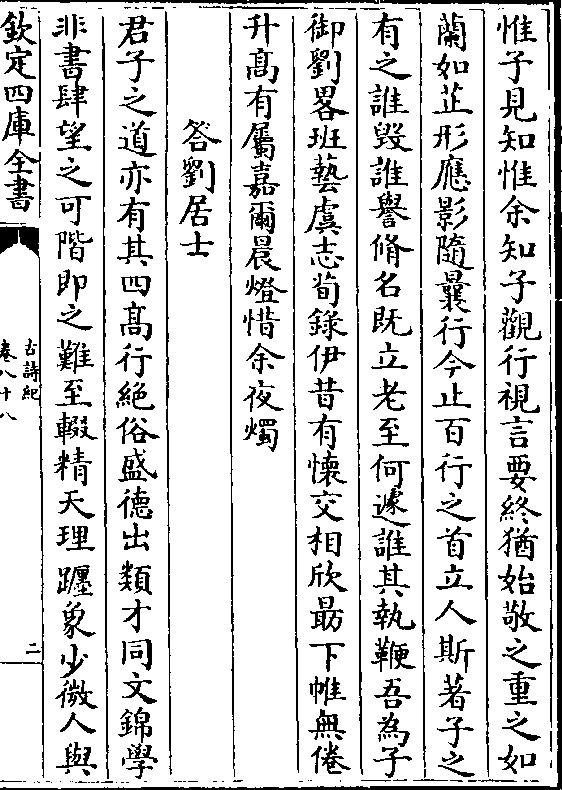 惟子見知惟余知子觀行視言要終猶始敬之重之如
蘭如芷形應影隨曩行今止百行之首立人斯著子之
有之誰毀誰譽脩名既立老至何遽誰其執鞭吾為子
御劉畧班藝虞志荀錄伊昔有懷交相欣朂下帷無倦
升髙有屬嘉爾晨燈惜余夜燭
答劉居士
君子之道亦有其四髙行絶俗盛德出類才同文錦學
非書肆望之可階即之難至輟精天理躔象少微人與
欽定四庫全書
古詩紀
卷八十八
二